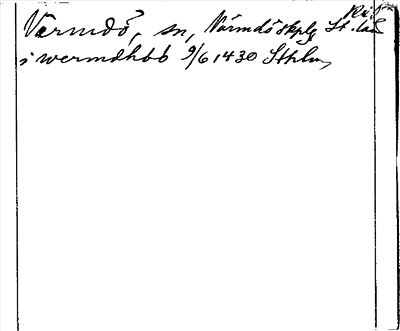 Värmdö, sn, Värmdö skplg St. län
i wermdhöö 9/6 1430 Sthlm,